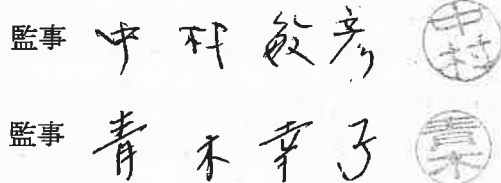 監事 中村敏彦 中村
監事 青木幸子 青木